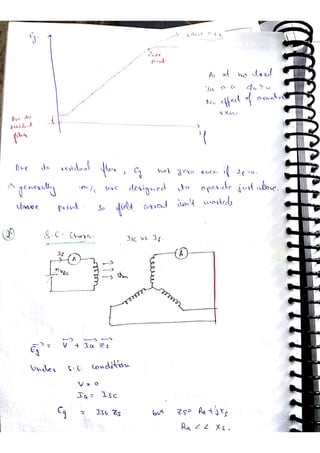 Eg
knee
point
As at no load
Ia = 0
No effect of armature
rxn.
Due to
residual
flux
If
Due to residual flux, Eg not zero even if If = 0.
generally m/c are designed to operate just above
knee point. So field current isn't wasted
S.C. Chara. Isc vs If.
If
A
Vdc
Φm
A
Eg = V + Ia Zs
Under S.C condition
V = 0
Ia = Isc
Eg = Isc Zs but Zs = Ra + jXs
Ra << Xs.